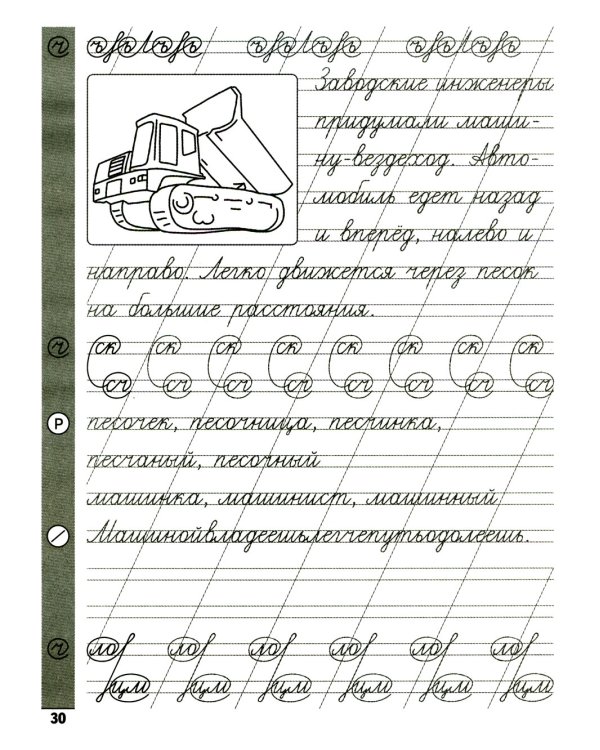 Заводские инженеры
придумали маши-
ну-вездеход. Авто-
мобиль едет назад
и вперёд, налево и
направо. Легко движется через песок
на большие расстояния.
ч ск ск ск ск ск ск ск ск
сч сч сч сч сч сч сч сч
Р песочек, песочница, песчинка,
песчаный, песочный
машинка, машинист, машинный
Машинойвладеешьлегчепутьодолеешь.
ч ло ло ло ло ло ло
цм цм цм цм цм цм
30